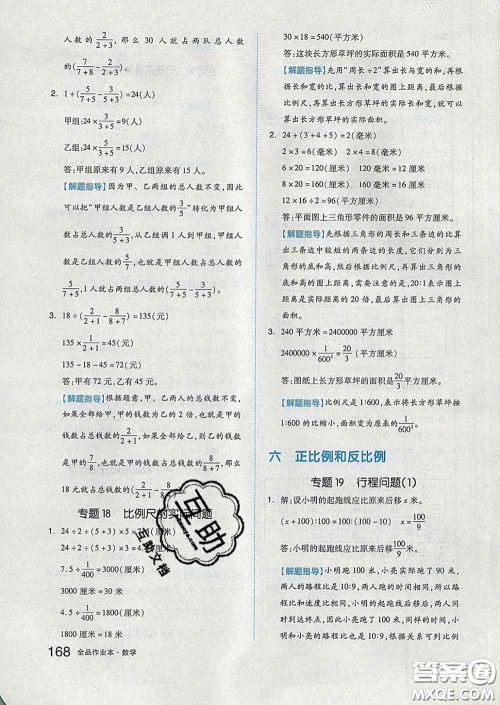 人数的 2/(2+3), 那么 30 人就占两队总人数
的(7/(7+8) − 2/(2+3))。
2. 1÷(5/(7+5) − 3/(5+3))=24(人)
甲组:24×3/(5+3)=9(人)
乙组:24×5/(5+3)=15(人)
答:甲组原来有 9 人,乙组原来有 15 人。
【解题指导】因为甲、乙两组的总人数不变,因
此可以把“甲组人数是乙组人数的3/5”转化为甲组人
数占总人数的3/(5+3),从乙组调 1 人到甲组,甲组
人数是乙组人数的5/7,也就是甲组人数占总人数的
5/(7+5),1 人就占总人数的(5/(7+5) − 3/(5+3))。
3. 18÷(2/(2+1) − 8/(8+7))=135(元)
135×1/(2+1)=45(元)
135−18−45=72(元)
答:甲有 72 元,乙有 45 元。
【解题指导】根据题意,甲、乙两人的总钱数不变,
如果全部给甲,甲的钱数为乙的 2 倍,也就是甲的
钱数占甲、乙两人的总钱数的2/(2+1),
如果全部给乙,甲的钱数占甲、乙两人的总钱数的
8/(8+7),丙的钱数占甲、乙两人的总钱数的(2/(2+1) − 8/(8+7))。
专题 18 比例尺的实际问题
1. 24÷2÷(5+3)×5=7.5(厘米)
24÷2÷(5+3)×3=4.5(厘米)
7.5÷1/400=3000(厘米)
3000 厘米=30 米
4.5÷1/400=1800(厘米)
1800 厘米=18 米
168 全品作业本·数学
30×18=540(平方米)
答:这块长方形草坪的实际面积是 540 平方米。
【解题指导】先用“周长÷2”算出长与宽的和,再根
据长和宽的比,算出长方形草坪的图上长和宽,然后
根据比例尺,算出长方形草坪的实际长和宽,就可以
算出长方形草坪的实际面积。
2. 24÷(3+4+5)=2(毫米)
2×3=6(毫米) 2×4=8(毫米)
6×20=120(毫米) 120 毫米=12 厘米
8×20=160(毫米) 160 毫米=16 厘米
12×16÷2=96(平方厘米)
答:平面图上三角形零件的面积是 96 平方厘米。
【解题指导】先根据三角形的周长和三条边的比算
出三角形中较短的两条边的长度,它们分别为三角
形的底和高,然后根据比例尺,再算出图上三角形的
底和高的图上距离,需要注意的是,20∶1表示图上距
离是实际距离的 20 倍,最后算出图上三角形的
面积。
3. 240 平方米=2400000 平方厘米
2400000×1/600²=20/3(平方厘米)
答:图纸上长方形草坪的面积是20/3平方厘米。
【解题指导】比例尺是1∶600,表示将长方形草坪按
1∶600缩小,面积变为原来的1/600²。
六 正比例和反比例
专题 19 行程问题(1)
1. 解:设小明的起跑线应比原来后移 x 米。
(x+100)∶100=100∶(100−10) x=100/9
答:小明的起跑线应比原来后移100/9米。
【解题指导】小明跑 100 米时,小亮实际跑了 90 米,
两人的路程比是10∶9,两人跑的时间相同,所以
以两人的速度比也是10∶9。后来两人同时
到达终点,因此小明和小亮跑的时间相同,
小明和小亮的路程比是10∶9,根据比例关系可列
答案圈
MXQE.COM
互助
互助文档